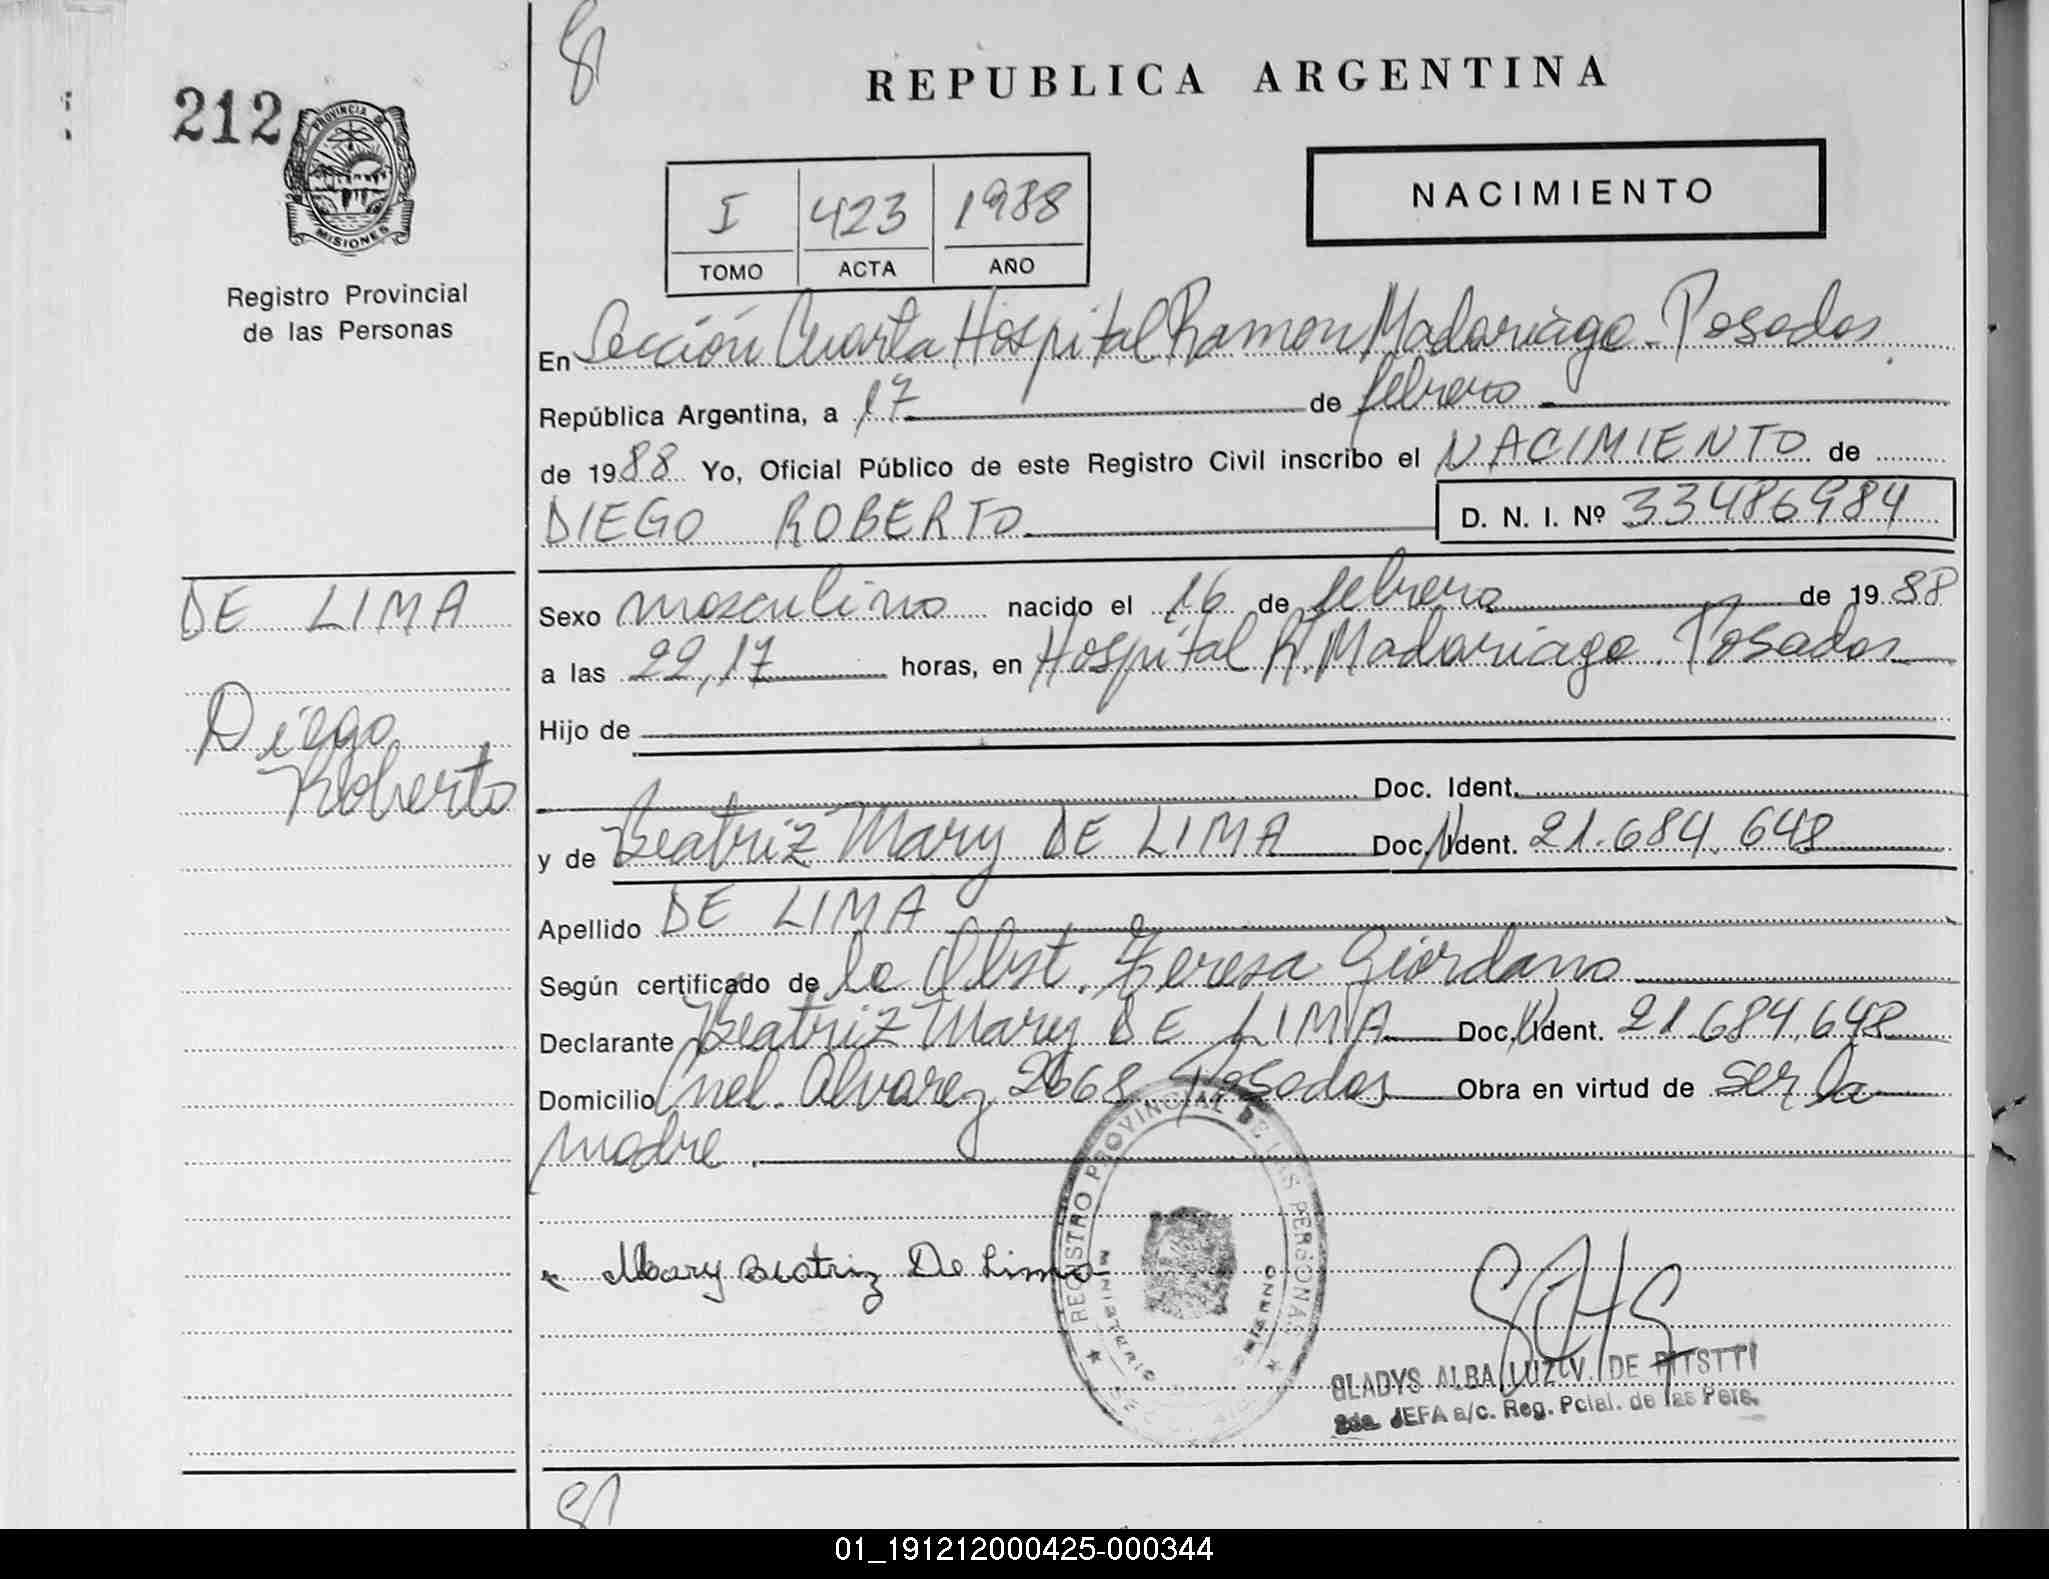 212
PROVINCIA DE
MISIONES
Registro Provincial
de las Personas
REPUBLICA ARGENTINA
I 423 1988
TOMO ACTA AÑO
NACIMIENTO
En Sección Cuarta Hospital Ramon Madariaga - Posadas
República Argentina, a 17 de febrero
de 1988 Yo, Oficial Público de este Registro Civil inscribo el NACIMIENTO de
DIEGO ROBERTO D. N. I. Nº 33486984
DE LIMA
Diego
Roberto
Sexo masculino nacido el 16 de febrero de 1988
a las 22,17 horas, en Hospital R. Madariaga. Posadas
Hijo de
Doc. Ident.
y de Beatriz Mary DE LIMA Doc. N. Ident. 21.684.648
Apellido DE LIMA
Según certificado de la Obst. Teresa Giordano
Declarante Beatriz Mary DE LIMA Doc. N. Ident. 21.684.648
Domicilio Cnel. Alvarez 2668 Posadas Obra en virtud de ser la
madre.
Mary Beatriz De Lima
REGISTRO PROVINCIAL DE LAS PERSONAS
MINISTERIO
GLADYS ALBA LUZ V. DE
2da. JEFA a/c. Reg. Pcial. de las Pers.
01_191212000425-000344